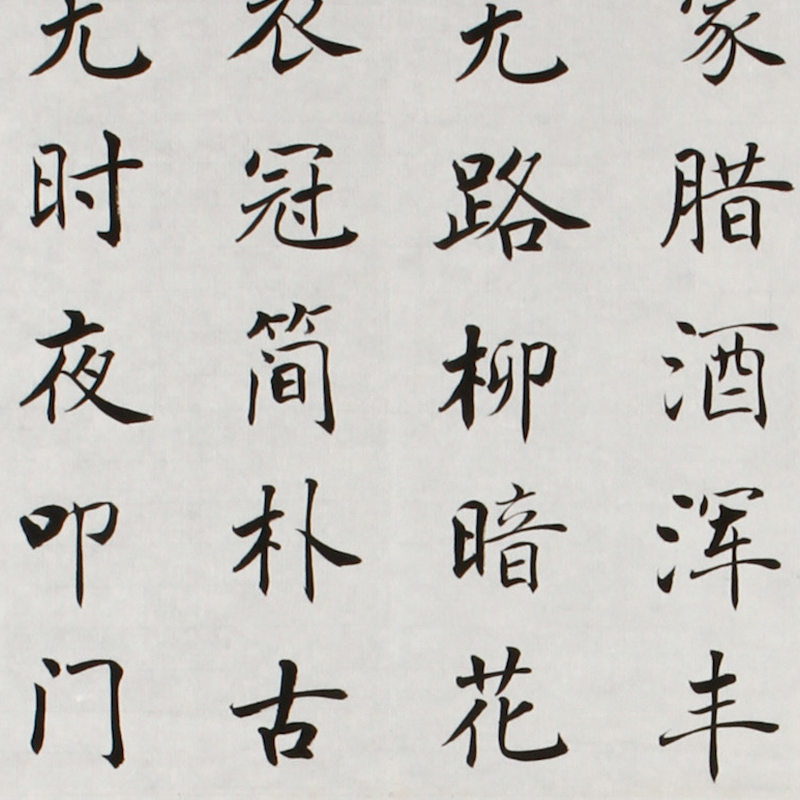 家腊酒浑丰
无路柳暗花
衣冠简朴古
无时夜叩门